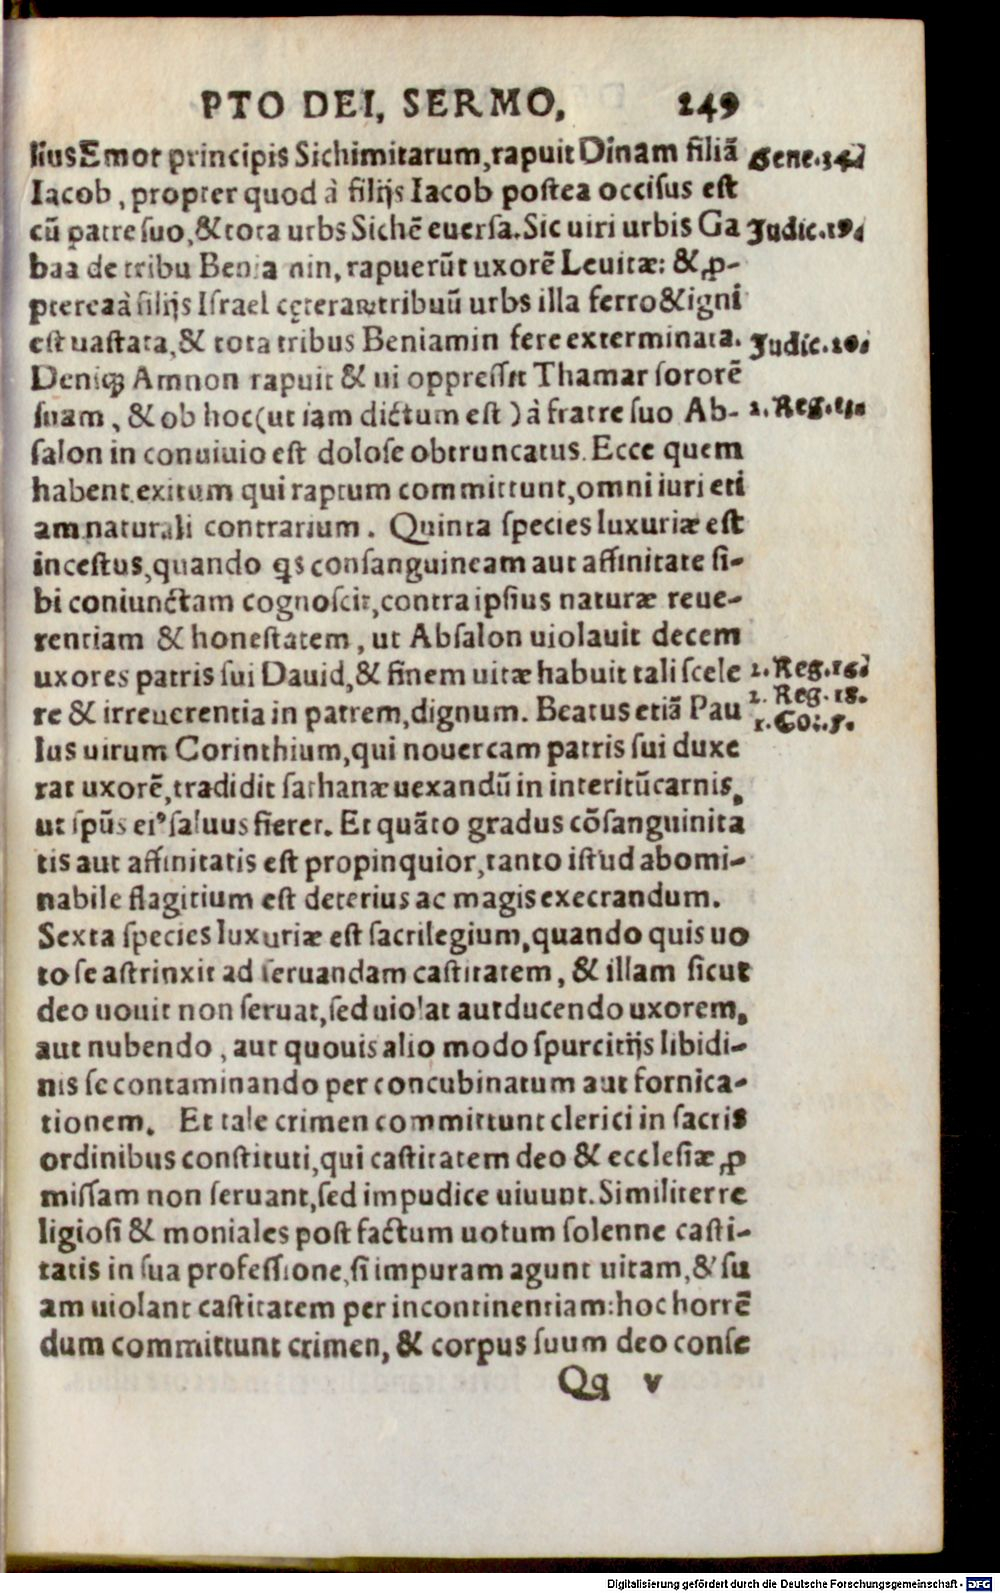 PTO DEI, SERMO, 249
liusEmor principis Sichimitarum,rapuit Dinam filiã Gene.34.
Iacob, propter quod à filijs Iacob postea occisus est
cũ patre suo,&tota urbs Sichē euersa.Sic uiri urbis Ga Judic.19.
baa de tribu Beniamin, rapuerũt uxorē Leuitæ: & ꝓ-
ptereaà filijs Israel cęteraꝝtribuũ urbs illa ferro&igni
est uastata,& tota tribus Beniamin fere exterminata. Judic.20.
Deniqꝫ Amnon rapuit & ui oppressit Thamar sororē
suam, & ob hoc(ut iam dictum est) à fratre suo Ab- 2.Reg.13.
salon in conuiuio est dolose obtruncatus. Ecce quem
habent exitum qui raptum committunt,omni iuri eti
am naturali contrarium. Quinta species luxuriæ est
incestus,quando qs consanguineam aut affinitate si-
bi coniunctam cognoscit,contra ipsius naturæ reue-
rentiam & honestatem, ut Absalon uiolauit decem
uxores patris sui Dauid,& finem uitæ habuit tali scele 2.Reg.16.
re & irreuerentia in patrem,dignum. Beatus etiã Pau 2.Reg.18.
lus uirum Corinthium,qui nouercam patris sui duxe 1.Cor.5.
rat uxorē,tradidit sathanæ uexandũ in interitũcarnis,
ut spũs ei⁹ saluus fieret. Et quãto gradus cõsanguinita
tis aut affinitatis est propinquior,tanto istud abomi-
nabile flagitium est deterius ac magis execrandum.
Sexta species luxuriæ est sacrilegium,quando quis uo
to se astrinxit ad seruandam castitatem, & illam sicut
deo uouit non seruat,sed uiolat aut ducendo uxorem,
aut nubendo, aut quouis alio modo spurcitijs libidi-
nis se contaminando per concubinatum aut fornica-
tionem. Et tale crimen committunt clerici in sacris
ordinibus constituti,qui castitatem deo & ecclesiæ ꝓ
missam non seruant,sed impudice uiuunt.Similiter re
ligiosi & moniales post factum uotum solenne casti-
tatis in sua professione,si impuram agunt uitam,& su
am uiolant castitatem per incontinentiam:hoc horrē
dum committunt crimen, & corpus suum deo conse
Qq v
Digitalisierung gefördert durch die Deutsche Forschungsgemeinschaft - DFG